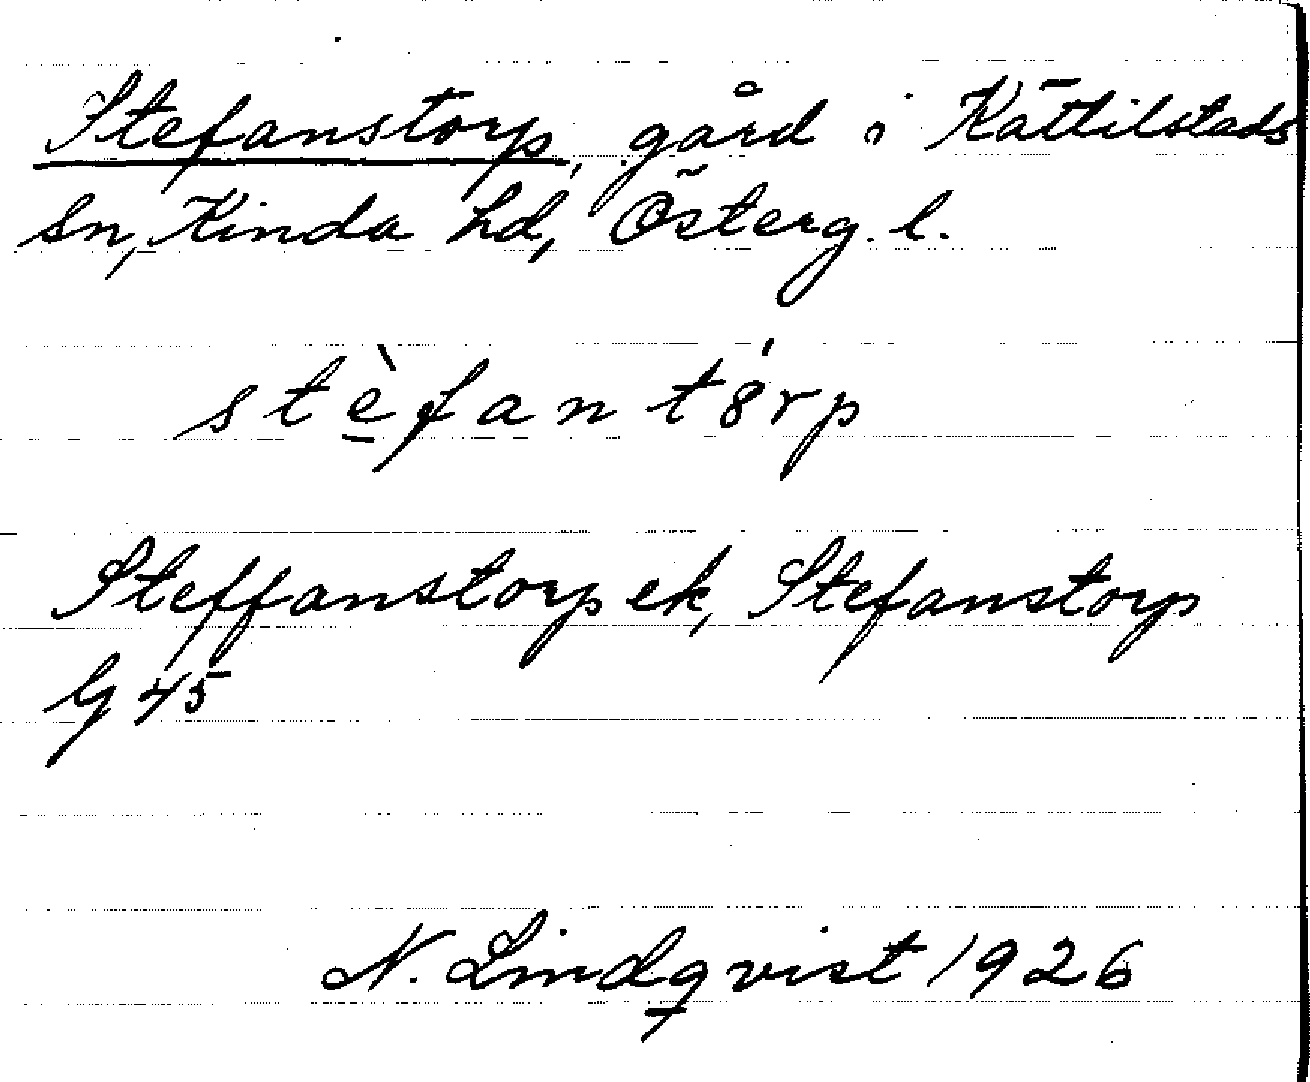 Stefanstorp, gård i Kättilstads
sn, Kinda hd, Österg. l.
stè̠fantȣ́rp
Steffanstorp ek, Stefanstorp
G 45
N. Lindqvist 1926